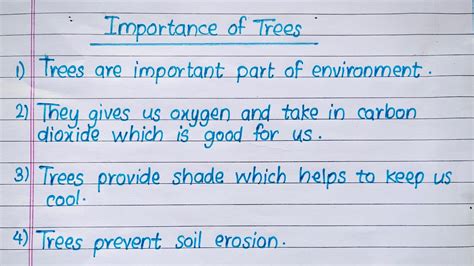 Importance of Trees
1) Trees are important part of environment.
2) They gives us oxygen and take in carbon
dioxide which is good for us.
3) Trees provide shade which helps to keep us
cool.
4) Trees prevent soil erosion.